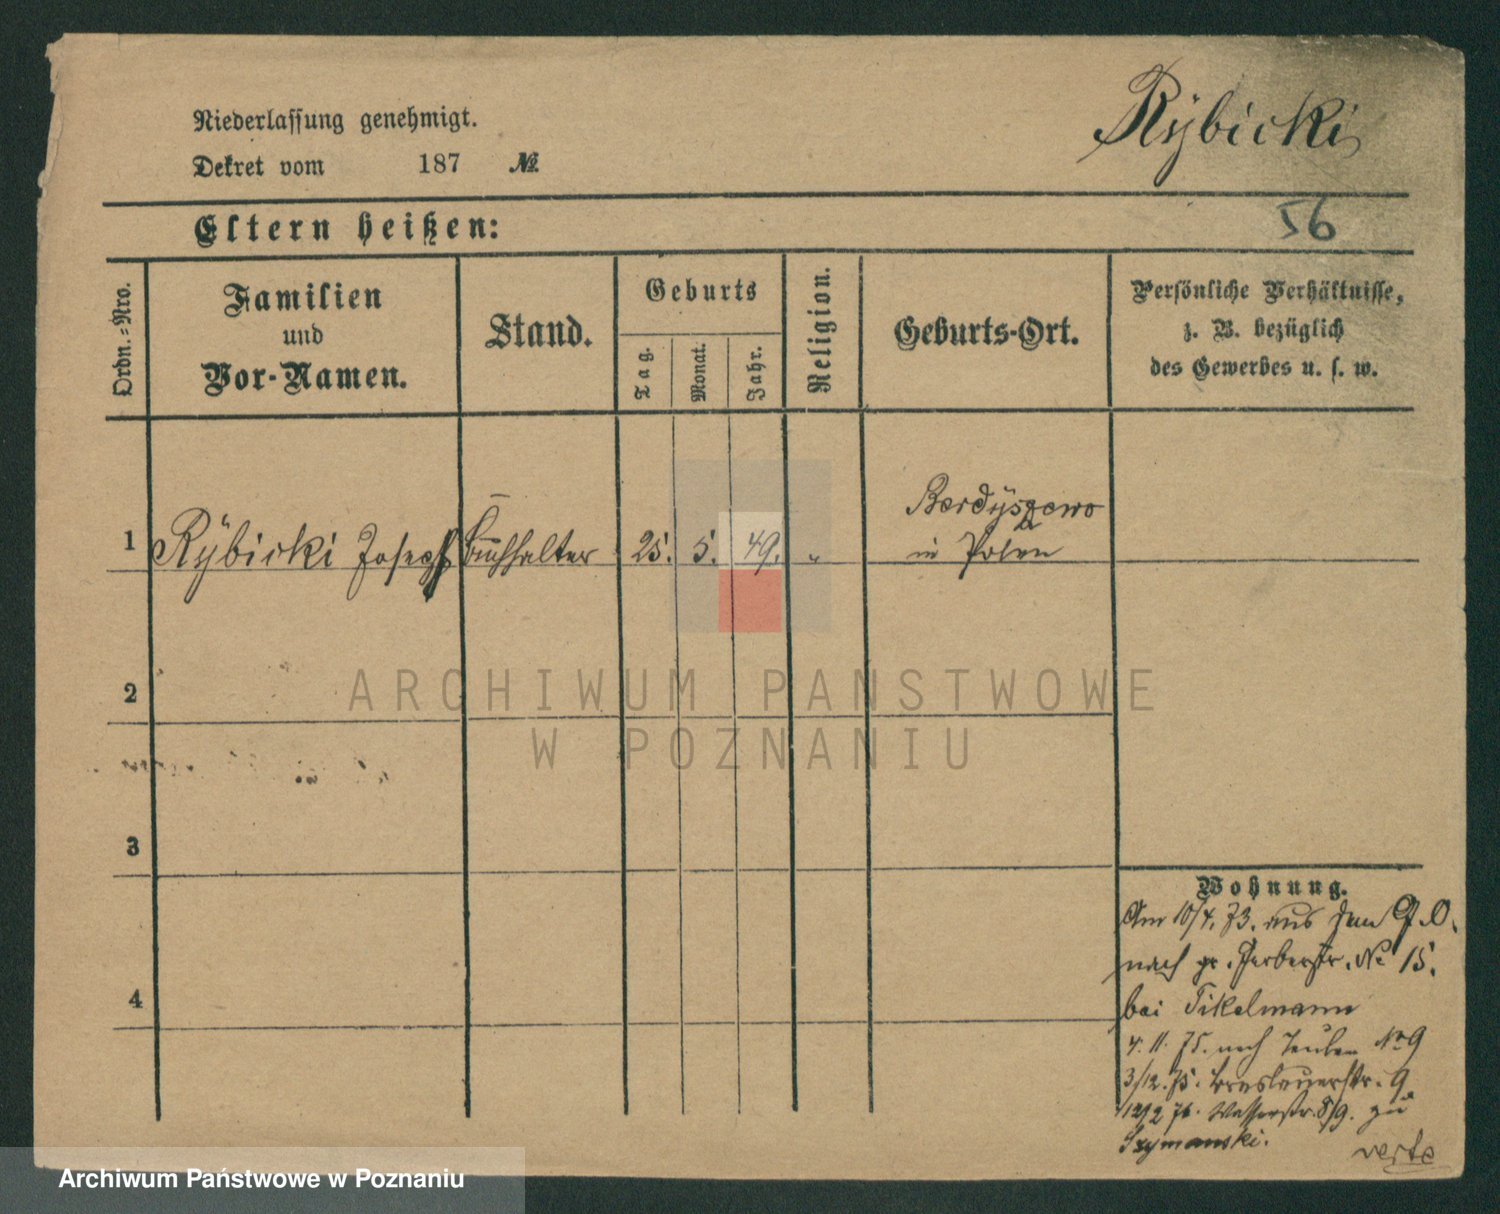 Rÿbicki
Niederlassung genehmigt.
Dekret vom 187 №
Eltern heißen:
56
Ordn.=Nro.
Familien
und
Vor-Namen.
Stand.
Geburts
Tag.
Monat.
Jahr.
Religion.
Geburts-Ort.
Persönliche Verhältnisse,
z. B. bezüglich
des Gewerbes u. s. w.
1 Rÿbicki Joseph Buchhalter 25. 5. 49. "
Berdÿszewo
in Polen
2
3
4
Wohnung.
Am 10/4. 73. aus dem
nach gr. Gerberstr. № 15.
bei Tikelmann
4. 11. 75. nach Tauben Nr 9
3/12. 75. Breslauerstr. 9
12/2 76. Wasserstr. 8/9. zu
Szymanski.
verte
ARCHIWUM PAŃSTWOWE
W POZNANIU
Archiwum Państwowe w Poznaniu